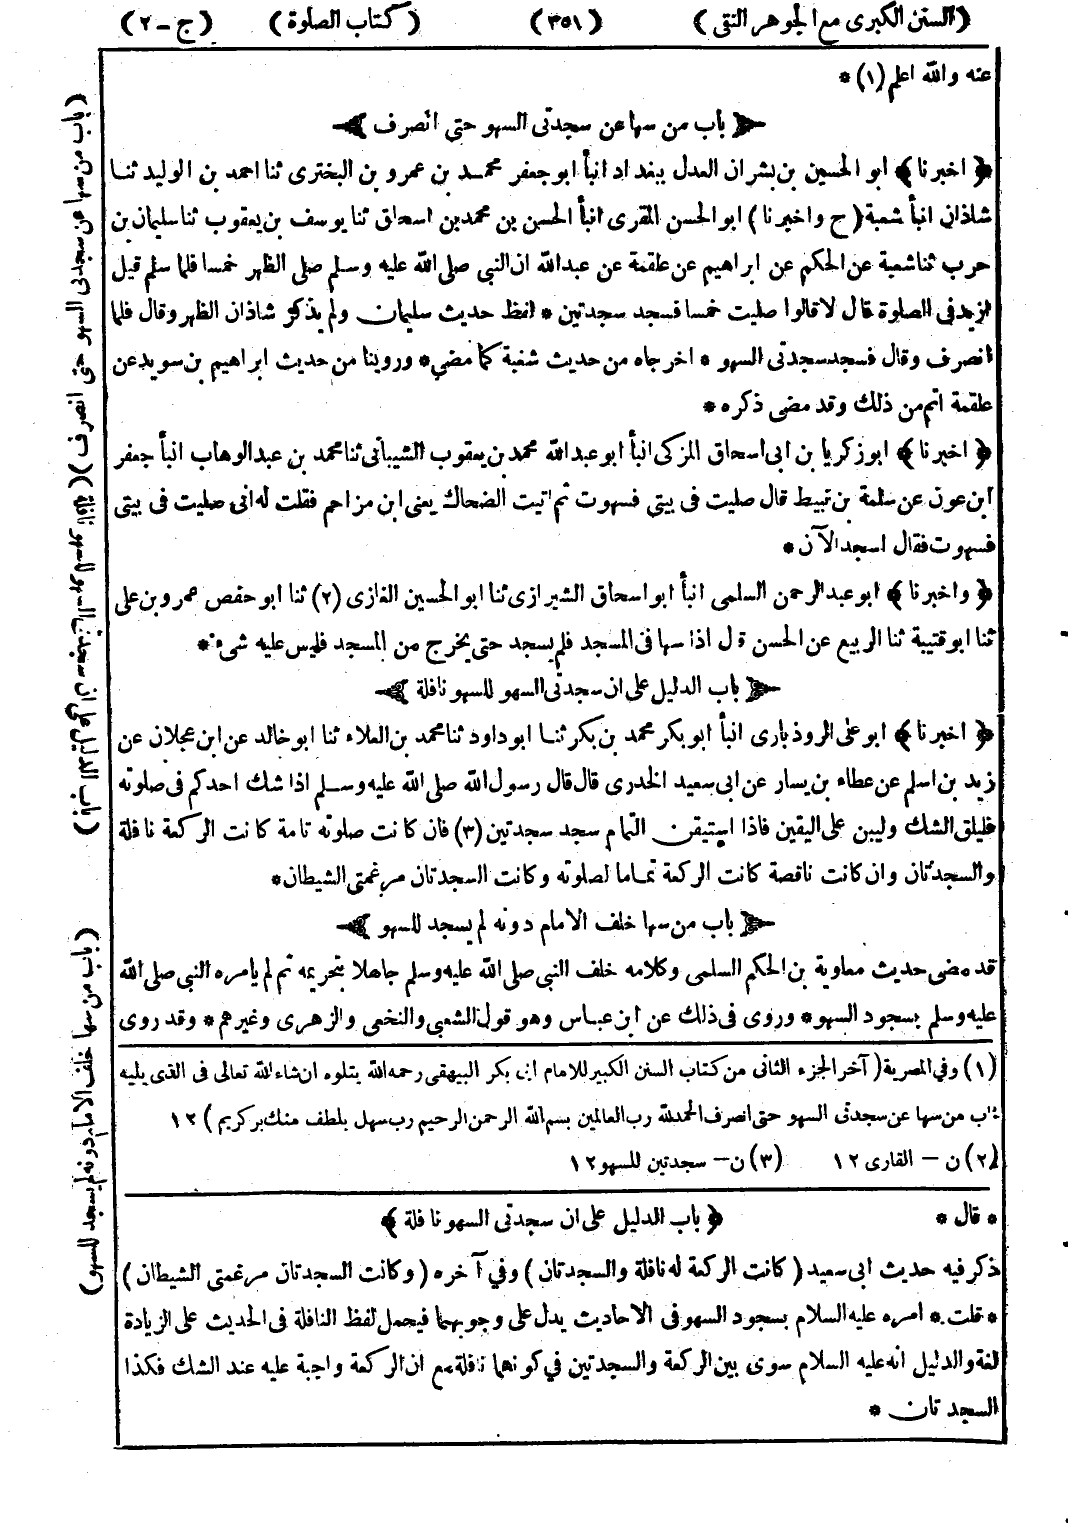 (السنن الكبرى مع الجوهر النقى) (٣٥١) (كتاب الصلوة) (ج - ٢)
عنه والله اعلم (١) *
باب من سها عن سجدتى السهو حتى انصرف
﴿ اخبرنا ﴾ ابو الحسين بن بشران العدل ببغداد انبأ ابو جعفر محمد بن عمرو بن البخترى ثنا احمد بن الوليد ثنا
شاذان انبأ شعبة (ح واخبرنا) ابو الحسن المقرى انبأ الحسن بن محمد بن اسحاق ثنا يوسف بن يعقوب ثنا سليمان بن
حرب ثنا شعبة عن الحكم عن ابراهيم عن علقمة عن عبدالله ان النبي صلى الله عليه وسلم صلى الظهر خمسا فلما سلم قيل
ازيد فى الصلوة قال لا قالوا صليت خمسا فسجد سجدتين * لفظ حديث سليمان ولم يذكر شاذان الظهر وقال فلما
انصرف وقال فسجد سجدتى السهو * اخرجاه من حديث شعبة كما مضى * وروينا من حديث ابراهيم بن سويد عن
علقمة اتم من ذلك وقد مضى ذكره *
﴿ اخبرنا ﴾ ابو زكريا بن ابى اسحاق المزكى انبأ ابو عبدالله محمد بن يعقوب الشيبانى ثنا محمد بن عبدالوهاب انبأ جعفر
ابن عون عن سلمة بن نبيط قال صليت فى بيتى فسهوت ثم اتيت الضحاك يعنى ابن مزاحم فقلت له انى صليت فى بيتى
فسهوت فقال اسجد الآن *
﴿ واخبرنا ﴾ ابو عبدالرحمن السلمى انبأ ابو اسحاق الشيرازى ثنا ابو الحسين الغازى (٢) ثنا ابو حفص عمرو بن على
ثنا ابو قتيبة ثنا الربيع عن الحسن قال اذا سها فى المسجد فلم يسجد حتى يخرج من المسجد فليس عليه شىء *
باب الدليل على ان سجدتى السهو للسهو نافلة
﴿ اخبرنا ﴾ ابو على الروذبارى انبأ ابو بكر محمد بن بكر ثنا ابو داود ثنا محمد بن العلاء ثنا ابو خالد عن ابن عجلان عن
زيد بن اسلم عن عطاء بن يسار عن ابى سعيد الخدرى قال قال رسول الله صلى الله عليه وسلم اذا شك احدكم فى صلوته
فليلق الشك وليبن على اليقين فاذا استيقن التمام سجد سجدتين (٣) فان كانت صلوته تامة كانت الركعة نافلة
والسجدتان وان كانت ناقصة كانت الركعة تماما لصلوته وكانت السجدتان مرغمتى الشيطان *
باب من سها خلف الامام دونه لم يسجد للسهو
قد مضى حديث معاوية بن الحكم السلمى وكلامه خلف النبي صلى الله عليه وسلم جاهلا بتحريمه ثم لم يامره النبي صلى الله
عليه وسلم بسجود السهو * وروى فى ذلك عن ابن عباس وهو قول الشعبي والنخعى والزهرى وغيرهم * وقد روى
(١) وفي المصرية (آخر الجزء الثانى من كتاب السنن الكبير للامام ابى بكر البيهقى رحمه الله يتلوه ان شاء الله تعالى فى الذى يليه
باب من سها عن سجدتى السهو حتى انصرف الحمدلله رب العالمين بسم الله الرحمن الرحيم رب سهل بلطف منك بركريم) ١٢
(٢) ن - القارى ١٢ (٣) ن - سجدتين للسهو ١٢
* قال * ﴿ باب الدليل على ان سجدتى السهو نافلة ﴾
ذكر فيه حديث ابى سعيد (كانت الركعة له نافلة والسجدتان) وفي آخره (وكانت السجدتان مرغمتى الشيطان)
* قلت * امره عليه السلام بسجود السهو فى الاحاديث يدل على وجوبهما فيحمل لفظ النافلة فى الحديث على الزيادة
لغة والدليل انه عليه السلام سوى بين الركعة والسجدتين في كونهما نافلة مع ان الركعة واجبة عليه عند الشك فكذا
السجدتان *
(باب من سها عن سجدتى السهو حتى انصرف)
(باب الدليل على ان سجدتى السهو للسهو نافلة)
(باب من سها خلف الامام دونه لم يسجد للسهو)